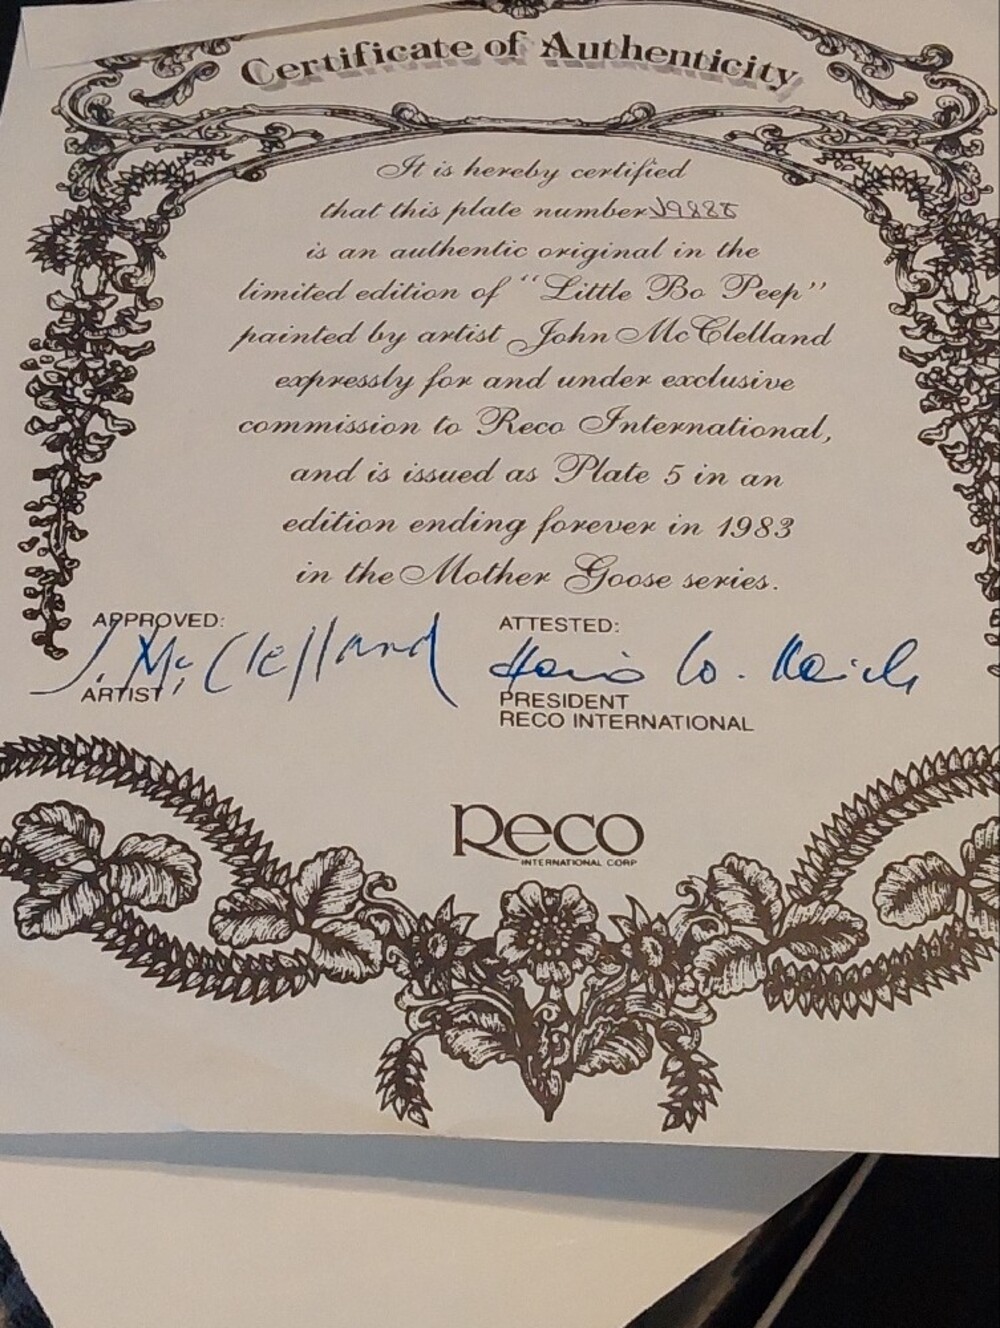 Certificate of Authenticity
It is hereby certified
that this plate number
is an authentic original in the
limited edition of "Little Bo Peep"
painted by artist John McClelland
expressly for and under exclusive
commission to Reco International,
and is issued as Plate 5 in an
edition ending forever in 1983
in the Mother Goose series.
APPROVED:
J. McClelland
ARTIST
ATTESTED:
PRESIDENT
RECO INTERNATIONAL
Reco
INTERNATIONAL CORP